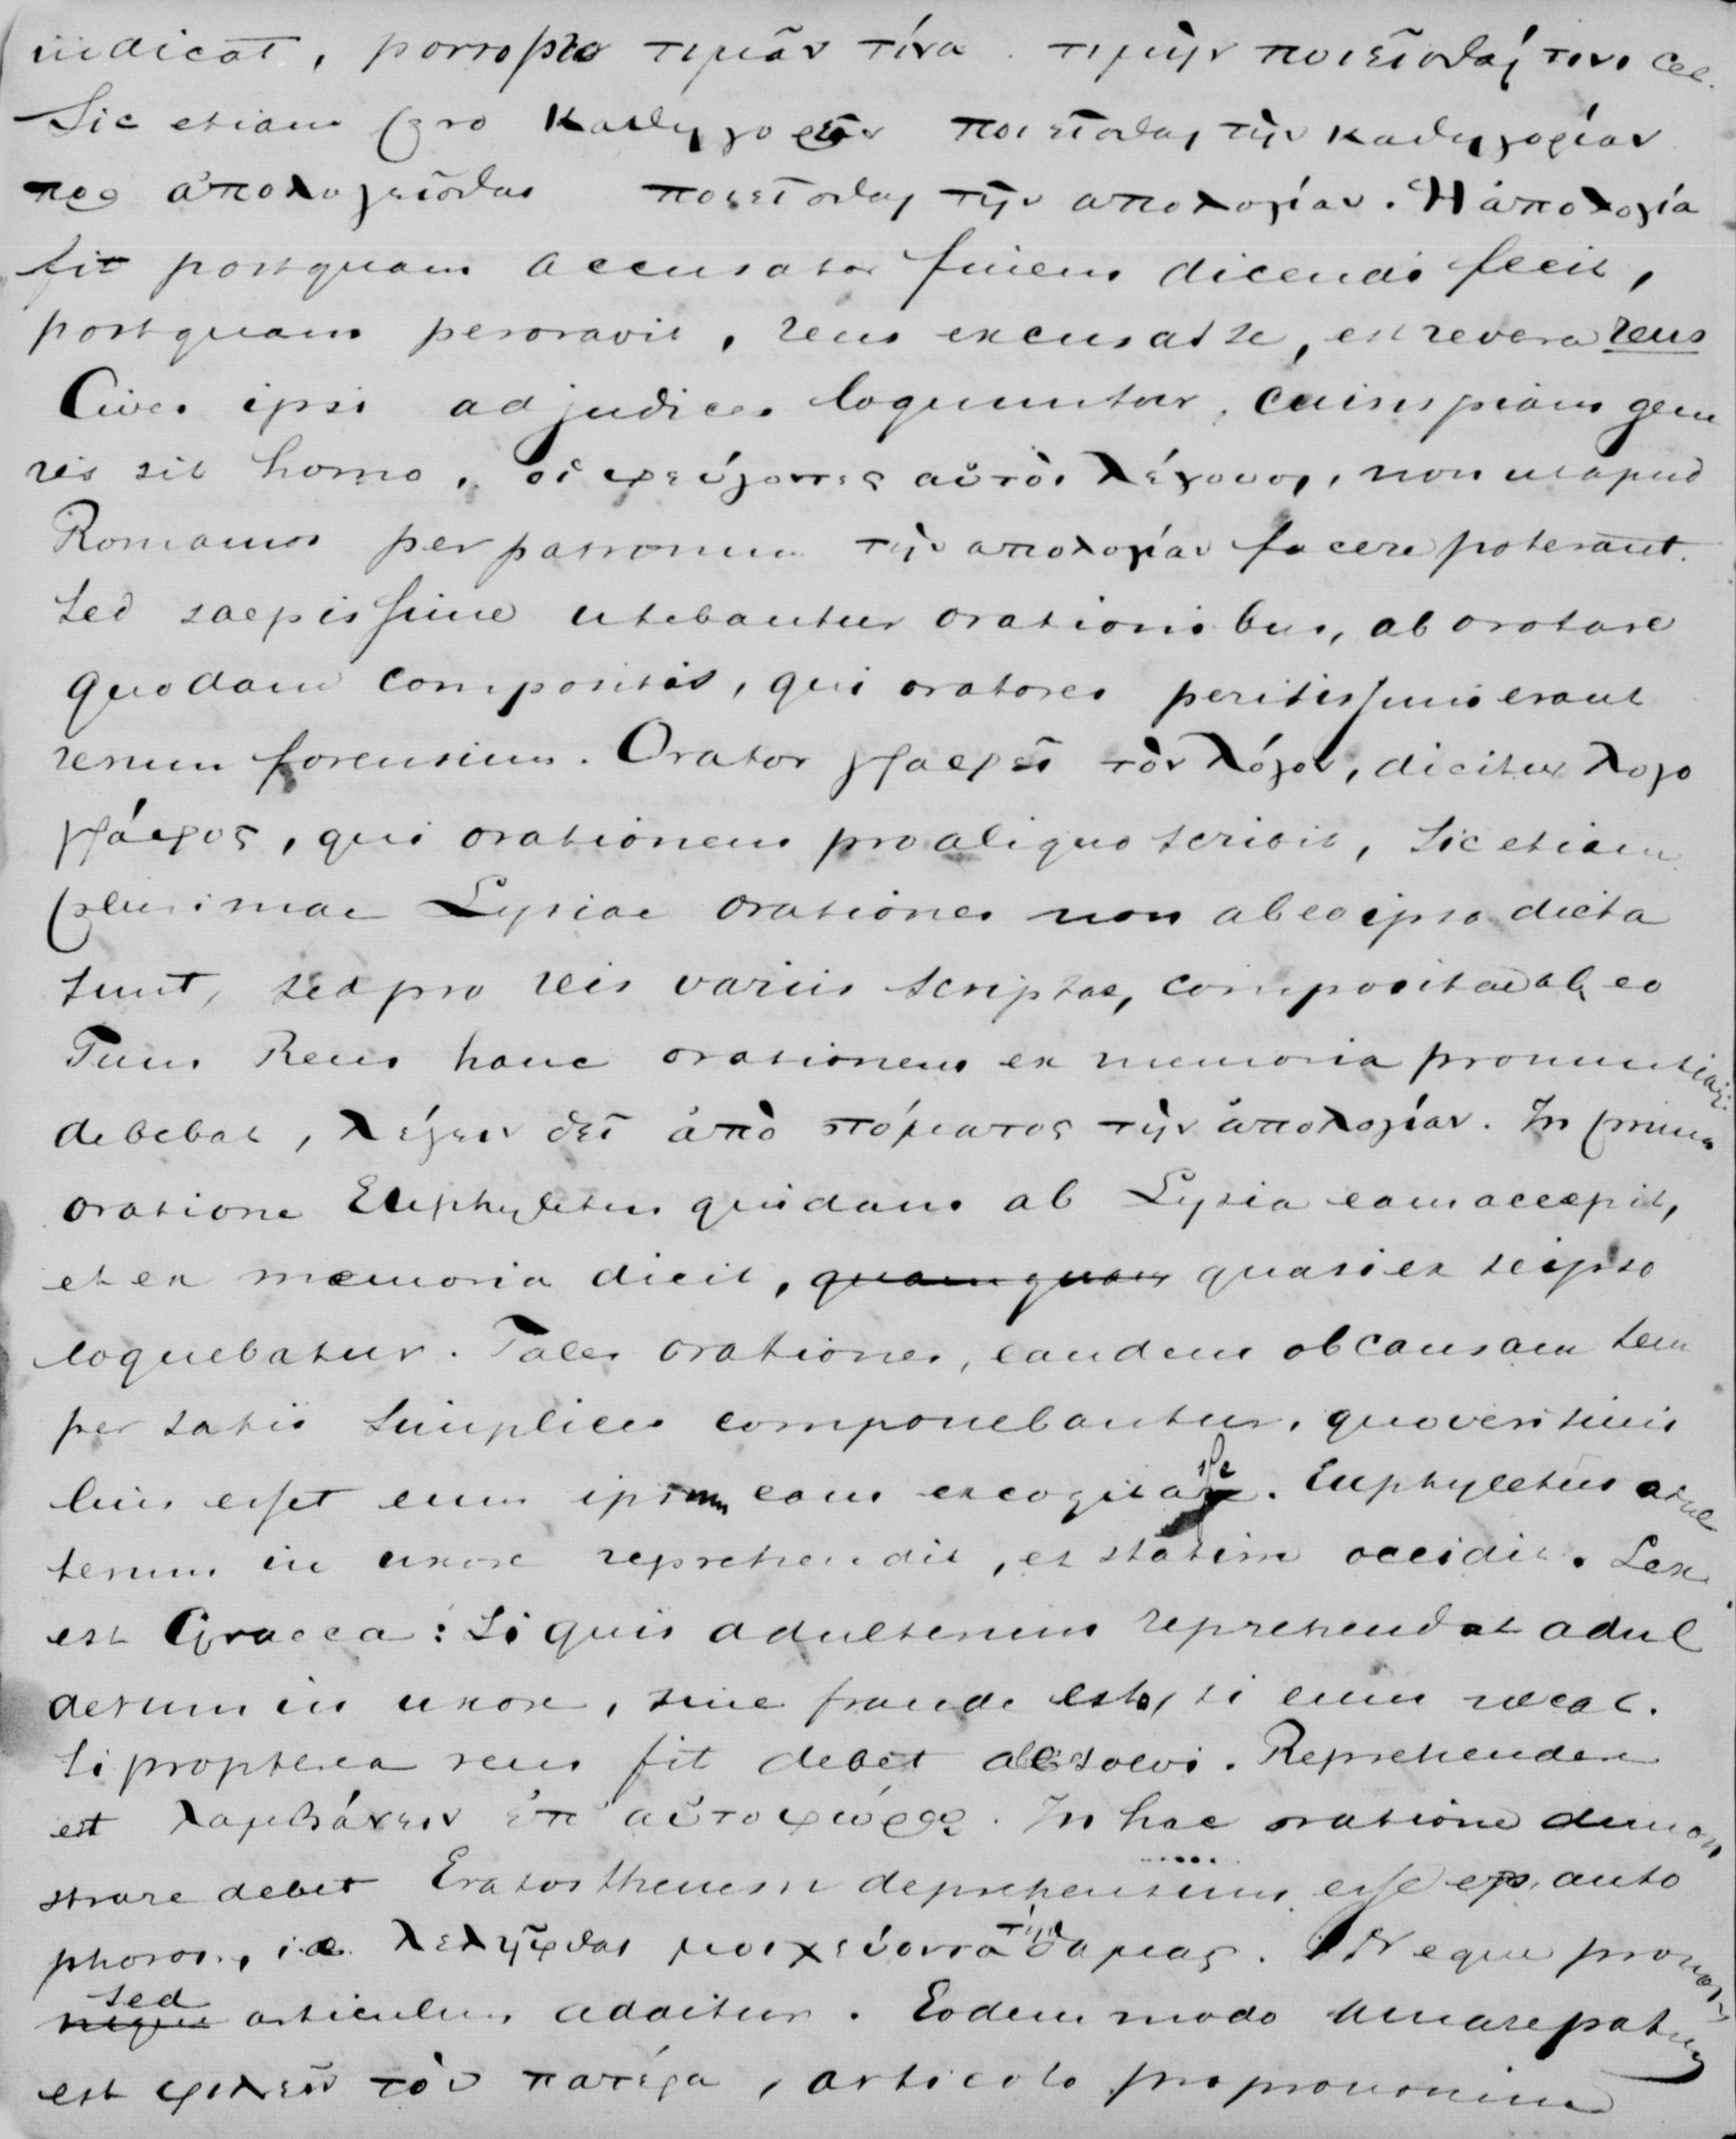 indicat, porro pro τιμᾶν τίνα τιμὴν ποιεῖσθαί τινα cet.
Sic etiam pro κατηγορεῖν ποιεῖσθαι τὴν κατηγορίαν
προ ἀπολογεῖσθαι ποιεῖσθαι τὴν απολογίαν. Ἡ ἀπολογία
fit postquam accusator finem dicendi fecit,
postquam peroravit, reus excusat se, est revera reus
Cives ipsi ad judices loquuntur, cuiuspiam gene
ris sit homo, οἱ φεύγοντες αὐτοὶ λέγουσι, non ut apud
Romanos per patronum τὴν απολογίαν facere poterant.
sed saepissime utebantur orationibus, ab oratore
quodam compositis, qui oratores peritissimi erant
rerum forensium. Orator γράφει τὸν λόγον, dicitur λογο
γράφος, qui orationem pro aliquo scribit, sic etiam
plurimae Lysiae orationes non ab eo ipso dicta
sunt, sed pro reis variis scriptae, compositae ab eo
Tum Reus hanc orationem ex memoria pronuntiare
debebat, λέγειν δεῖ ἀπὸ στόματος τὴν ἀπολογίαν. In prima
oratione Euphyletus quidam ab Lysia eam accepit,
et ex memoria dicit, quamquam quasi ex se ipso
loquebatur. Tales orationes, eandem ob causam sem
per satis simplices componebantur, quo verisimi
lius esset eum ipsum eam excogitasse. Euphyletus adul
terum in uxore reprehendit, et statim occidit. Lex
est Graeca: Si quis adulterum reprehendat adul
terum in uxore, sine fraude esto, si eum necat.
Si propterea reus fit debet absolvi. Reprehendere
est λαμβάνειν ἐπ' αὐτοφώρῳ. In hac oratione demon
strare debet Eratosthenem deprehensum esse ep' auto
phoroi, i.e. λελῆφθαι μοιχεύοντα τὴν δαμας. Neque pronomen
sed neque articulus additur. Eodem modo amare patrem
est φιλεῖν τὸν πατέρα, articolo pro pronomine